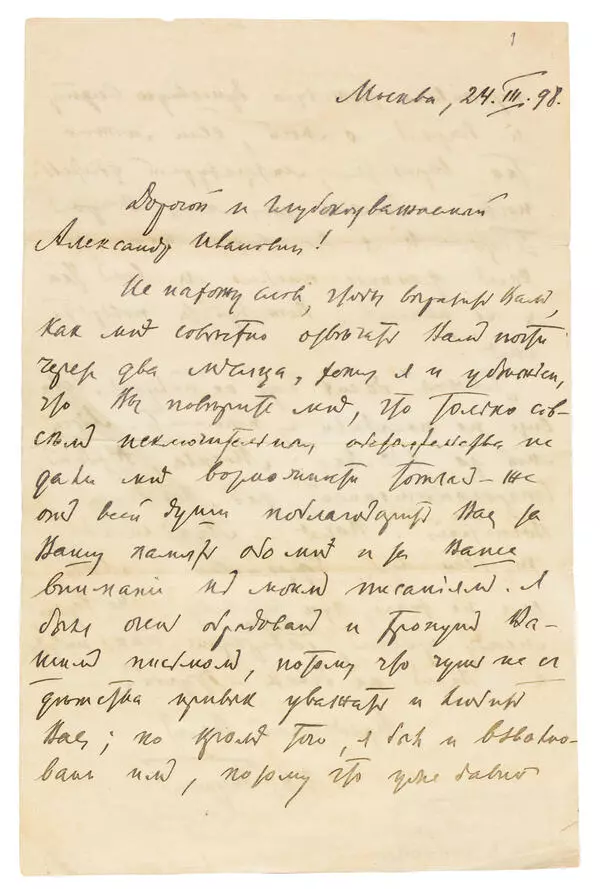 1
Москва, 24.III.98.
Дорогой и глубокоуважаемый
Александръ Ивановичъ!
Не нахожу словъ, чтобы выразить Вамъ,
какъ мнѣ совѣстно отвѣчать Вамъ почти
черезъ два мѣсяца, хотя я и убѣжденъ,
что Вы повѣрите мнѣ, что только сов-
сѣмъ исключительныя обстоятельства не
дали мнѣ возможности тотчасъ-же
отъ всей души поблагодарить Васъ за
Вашу память обо мнѣ и за Ваше
вниманіе къ моимъ писаніямъ. Я
былъ очень обрадованъ и тронутъ Ва-
шимъ письмомъ, потому что чуть не съ
дѣтства привыкъ уважать и любить
Васъ; но кромѣ того, я былъ и взволно-
ванъ имъ, потому что уже давно